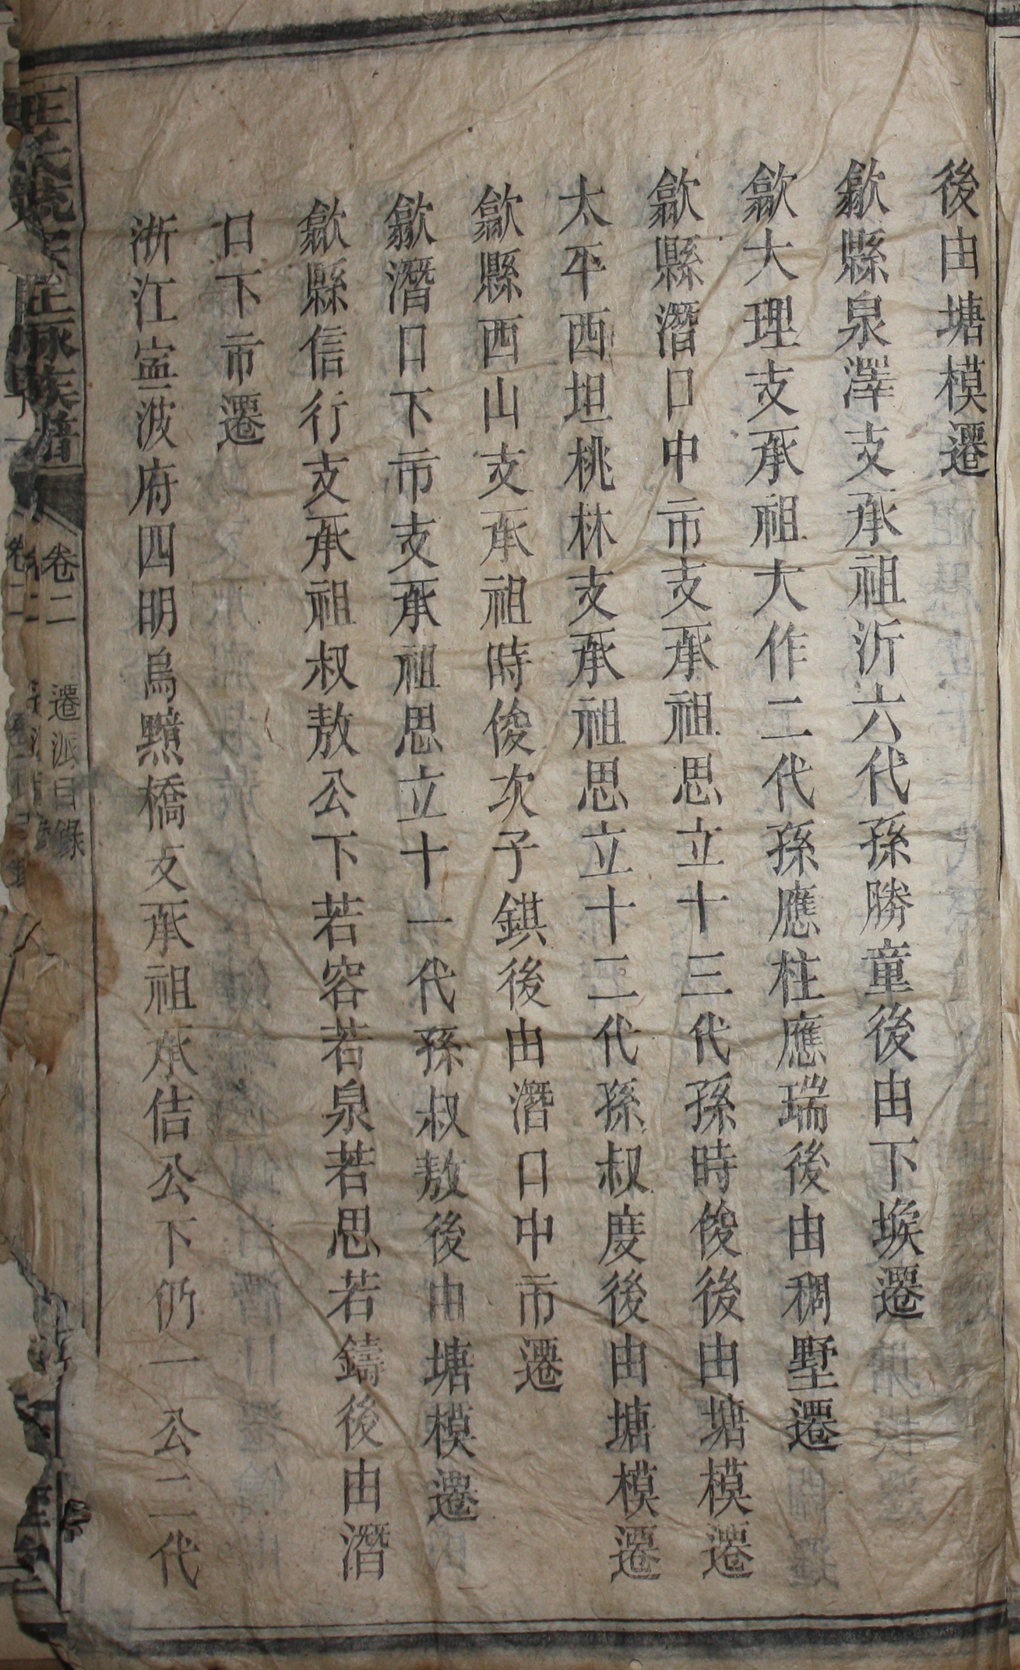 後由塘模遷
歙縣泉澤支承祖沂六代孫勝童後由下堘遷
歙大理支承祖大作二代孫應柱應瑞後由稠墅遷
歙縣潛口中市支承祖思立十三代孫時俊後由塘模遷
太平西坦桃林支承祖思立十二代孫叔度後由塘模遷
歙縣西山支承祖時俊次子錤後由潛口中市遷
歙潛口下市支承祖思立十一代孫叔敖後由塘模遷
歙縣信行支承祖叔敖公下若容若泉若思若鑄後由潛
口下市遷
浙江寧波府四明烏黲橋支承祖承佶公下仍一公二代
卷二
遷派目錄